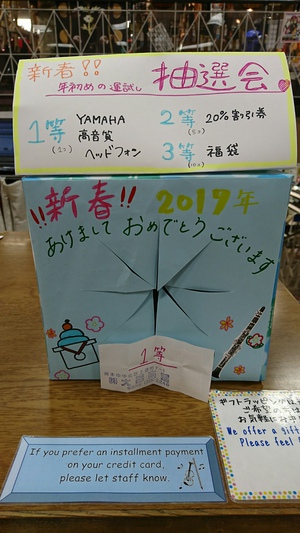 新春!!
年初めの運試し 抽選会
1等 YAMAHA
高音質
ヘッドフォン
2等 20%割引券
3等 福袋
!!新春!! 2017年
あけまして おめでとうございます
1等
If you prefer an installment payment
on your credit card,
please let staff know.
ギフトラッピングは
ご希望の
お気軽にお
We offer a gift
Please feel